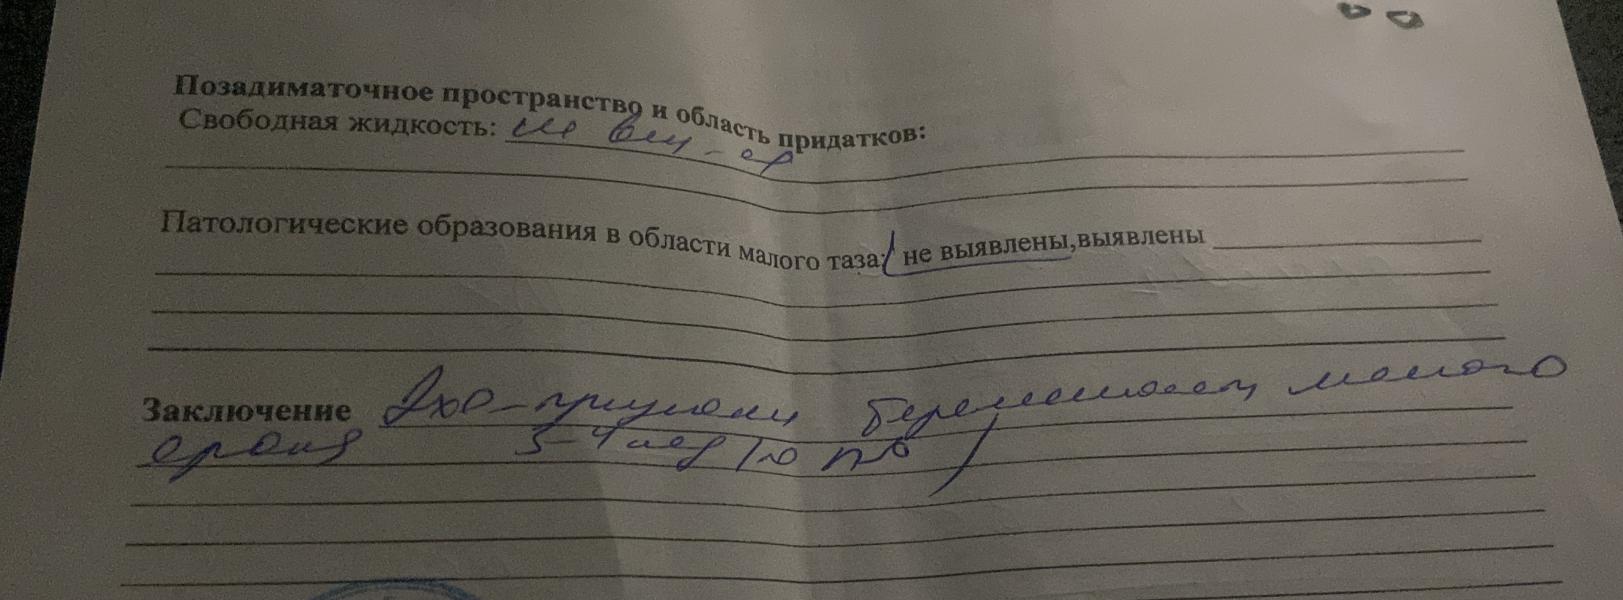 Позадиматочное пространство и область придатков:
Свободная жидкость: не виз-ся
Патологические образования в области малого таза: не выявлены,выявлены
Заключение Эхо-признаки беременности малого
срока 3-4 нед